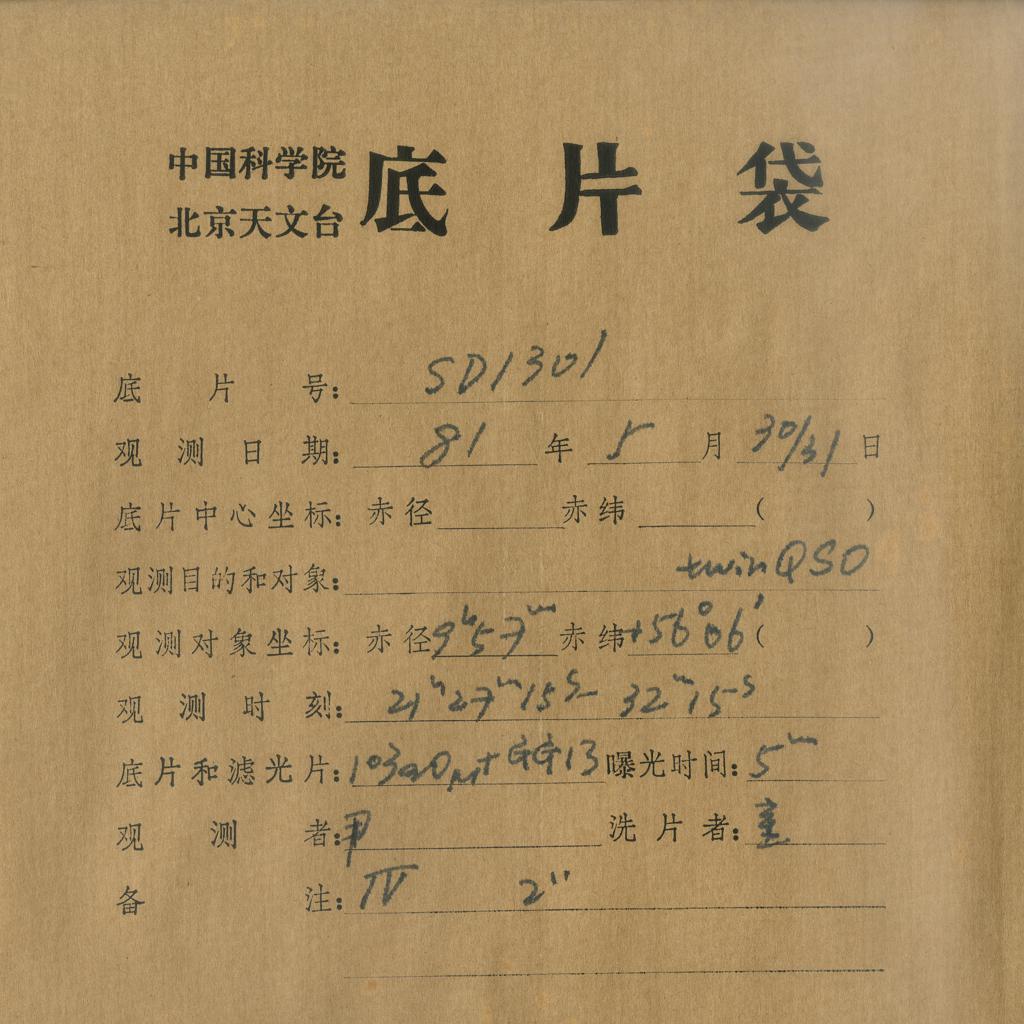 中国科学院
北京天文台
底片袋
底片号: SD1301
观测日期: 81年5月30/31日
底片中心坐标: 赤径 赤纬 ( )
观测目的和对象: twin QSO
观测对象坐标: 赤径 9h57m 赤纬 +56°06′ ( )
观测时刻: 21h27m15s– 32m15s
底片和滤光片: 103aO 13 曝光时间: 5m
观测者: 洗片者:
备注: IV 2″